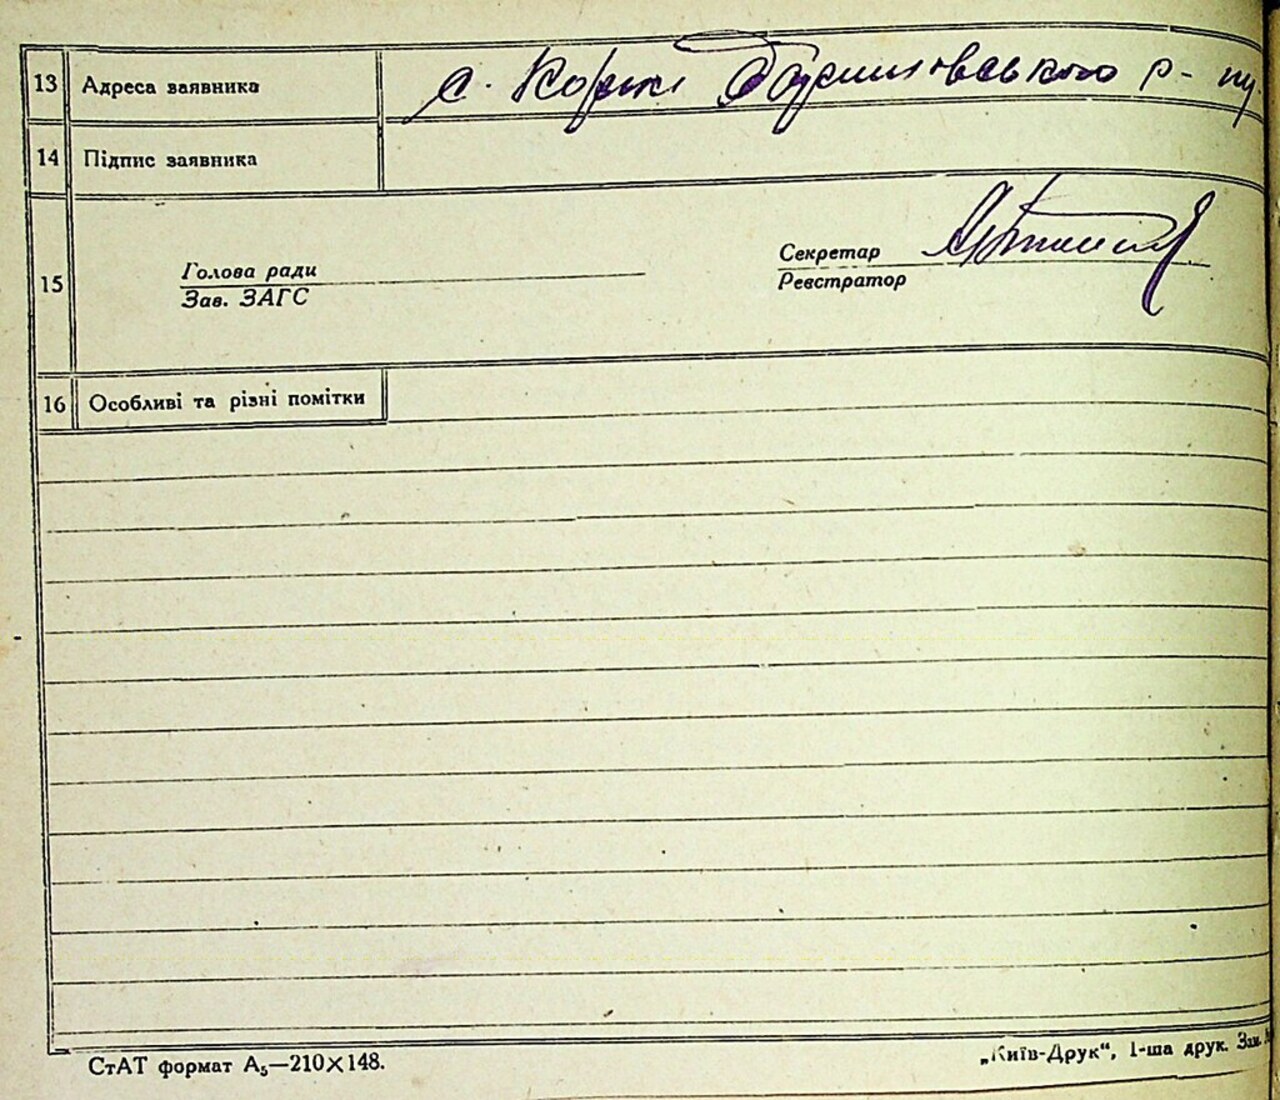 13 Адреса заявника с. Корні р-ну
14 Підпис заявника
15 Голова ради
Зав. ЗАГС
Секретар
Реєстратор
16 Особливі та різні помітки
СтАТ формат А₅—210×148.
„Київ-Друк“, 1-ша друк. Зам.